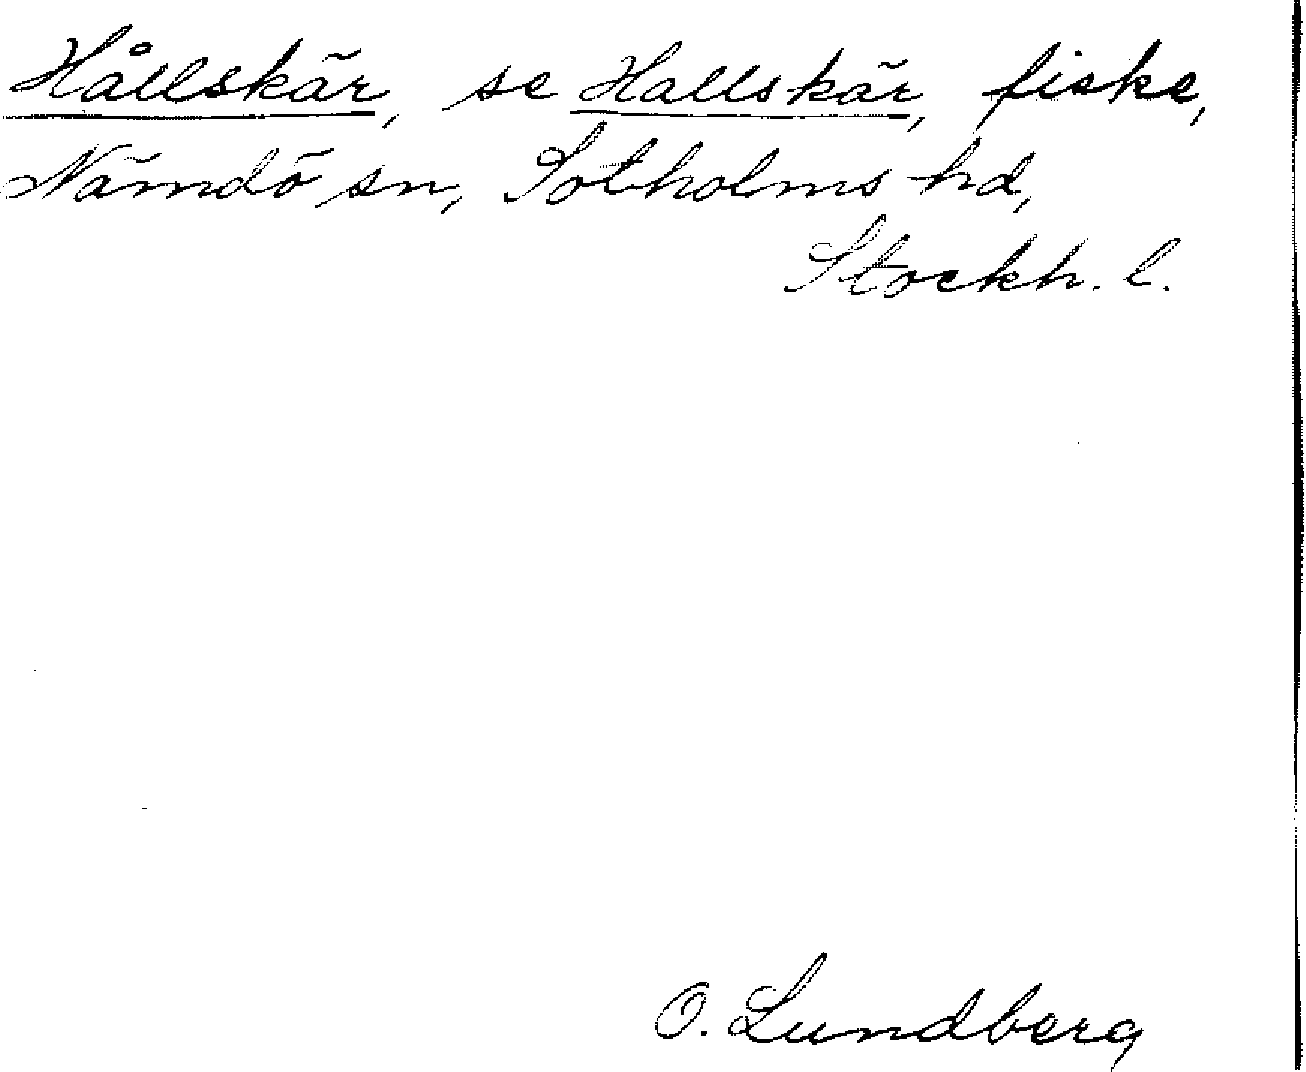 Hållskär, se Hallskär, fiske,
Nämdö sn, Sotholms hd,
Stockh. l.
O. Lundberg